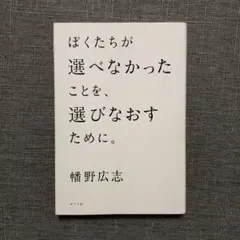 ぼくたちが
選べなかった
ことを、
選びなおす
ために。
幡野広志